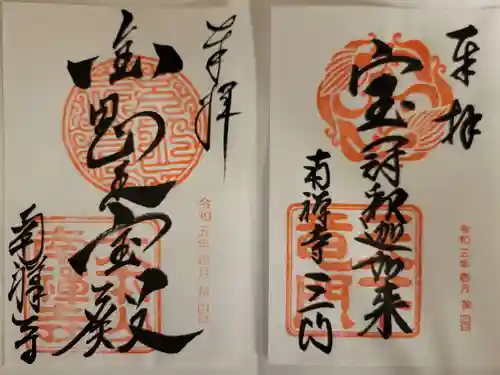 奉拝
令和五年壱月拾四日
金剛王宝殿
南禅寺
奉拝
令和五年壱月拾四日
宝冠釈迦如来
南禅寺 三門